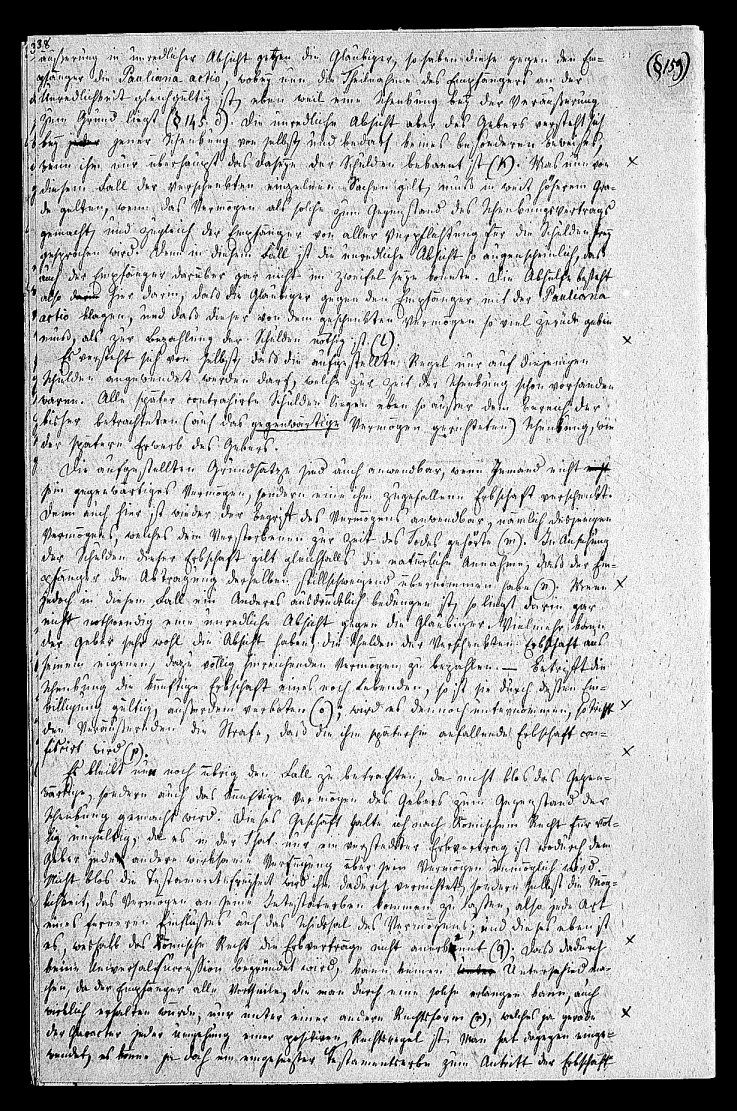 338
(§ 159)
äußerung in unredlicher Absicht gegen die Gläubiger, so haben diese gegen den Em-
pfänger die Pauliana actio, wobey nun die Theilnahme des Empfängers an der
Unredlichkeit gleichgültig ist, eben weil eine Schenkung bey der Veräußerung
zum Grund liegt (§ 145. ). Die unredliche Absicht aber des Gebers versteht sich
bey jener Schenkung von selbst, und bedarf keines besonderen Beweises,
wenn ihm nur überhaupt das Daseyn der Schulden bekannt ist (k). Was nun von
diesem Fall der verschenkten einzelnen Sachen gilt, muß in weit höherem Gra-
de gelten, wenn das Vermögen als solches zum Gegenstand des Schenkungsvertrags
gemacht, und zugleich der Empfänger von aller Verpflichtung für die Schulden frey
gesprochen wird. Denn in diesem Fall ist die unredliche Absicht so augenscheinlich, daß
auch der Empfänger darüber gar nicht in Zweifel seyn konnte. Die Abhülfe besteht
also hier darin, daß die Gläubiger gegen den Empfänger mit der Pauliana
actio klagen, und daß dieser von dem geschenkten Vermögen so viel zurück geben
muß, als zur Bezahlung der Schulden nöthig ist (l).
Es versteht sich von selbst, daß die aufgestellte Regel nur auf diejenigen
Schulden angewendet werden darf, welche zur Zeit der Schenkung schon vorhanden
waren. Alle später contrahirte Schulden liegen eben so außer dem Bereich der
bisher betrachteten (auf das gegenwärtige Vermögen gerichteten) Schenkung, wie
der spätere Erwerb des Gebers.
Die aufgestellten Grundsätze sind auch anwendbar, wenn Jemand nicht
sein gegenwärtiges Vermögen, sondern eine ihm zugefallene Erbschaft verschenkt.
Denn auch hier ist wieder der Begriff des Vermögens anwendbar, nämlich desjenigen
Vermögens, welches dem Verstorbenen zur Zeit des Todes gehörte (m). In Ansehung
der Schulden dieser Erbschaft gilt gleichfalls die natürliche Annahme, daß der Em-
pfänger die Abtragung derselben stillschweigend übernommen habe (n). Wenn
jedoch in diesem Fall ein Anderes ausdrücklich bedungen ist, so liegt darin gar
nicht nothwendig eine unredliche Absicht gegen die Gläubiger. Vielmehr kann
der Geber sehr wohl die Absicht haben, die Schulden der verschenkten Erbschaft aus
seinem eigenen, dazu völlig hinreichenden Vermögen zu bezahlen. — Betrifft die
Schenkung die künftige Erbschaft eines noch Lebenden, so ist sie durch dessen Ein-
willigung gültig, außerdem verboten (o); wird es dennoch unternommen, so trifft
den Veräußernden die Strafe, daß die ihm späterhin anfallende Erbschaft con-
fiscirt wird (p).
Es bleibt nun noch übrig den Fall zu betrachten, da nicht blos das Gegen-
wärtige, sondern auch das künftige Vermögen des Gebers zum Gegenstand der
Schenkung gemacht wird. Dieses Geschäft halte ich nach Römischem Recht für völ-
lig ungültig, da es in der That nur ein versteckter Erbvertrag ist, wodurch dem
Geber jede andere wirksame Verfügung über sein Vermögen unmöglich wird.
Nicht blos die Testamentsfreiheit wird ihm dadurch vernichtet, sondern selbst die Mög-
lichkeit, das Vermögen an seine Intestaterben kommen zu lassen, also jede Art
eines ferneren Einflusses auf das Schicksal des Vermögens; und dieses eben ist
es, weshalb das Römische Recht die Erbverträge nicht anerkennt (q). Daß dadurch
keine Universalsuccession begründet wird, kann keinen Unterschied ma-
chen, da der Empfänger alle Vortheile, die man durch eine solche erlangen kann, auch
wirklich erhalten würde, nur unter einer andern Rechtsform (r), welches ja gerade
der Character jeder Umgehung einer positiven Rechtsregel ist. Man hat dagegen einge-
wendet, es könne ja doch ein eingesetzter Testamentserbe zum Antritt der Erbschaft